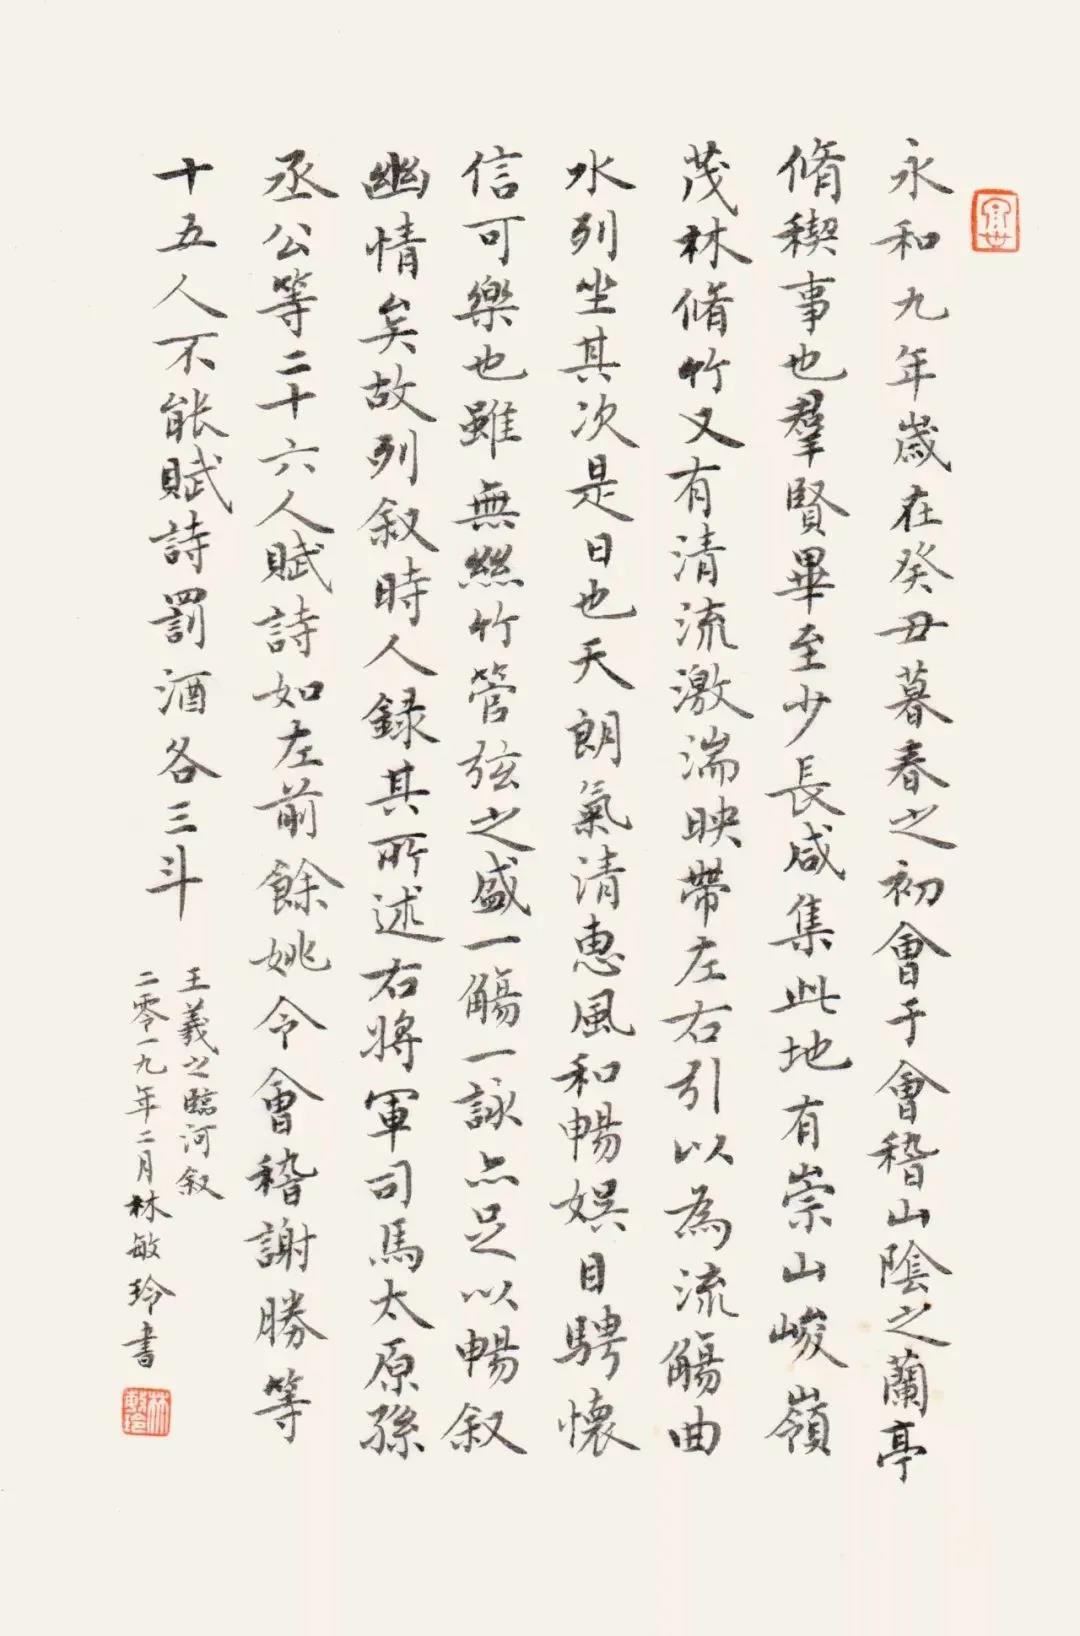 永和九年歲在癸丑暮春之初會于會稽山陰之蘭亭
脩稧事也羣賢畢至少長咸集此地有崇山峻嶺
茂林脩竹又有清流激湍映帶左右引以為流觴曲
水列坐其次是日也天朗氣清惠風和暢娛目騁懷
信可樂也雖無絲竹管弦之盛一觴一詠亦足以暢叙
幽情矣故列叙時人録其所述右將軍司馬太原孫
丞公等二十六人賦詩如左前餘姚令會稽謝勝等
十五人不能賦詩罰酒各三斗
王羲之臨河叙
二零一九年二月林敏玲書
林敏玲